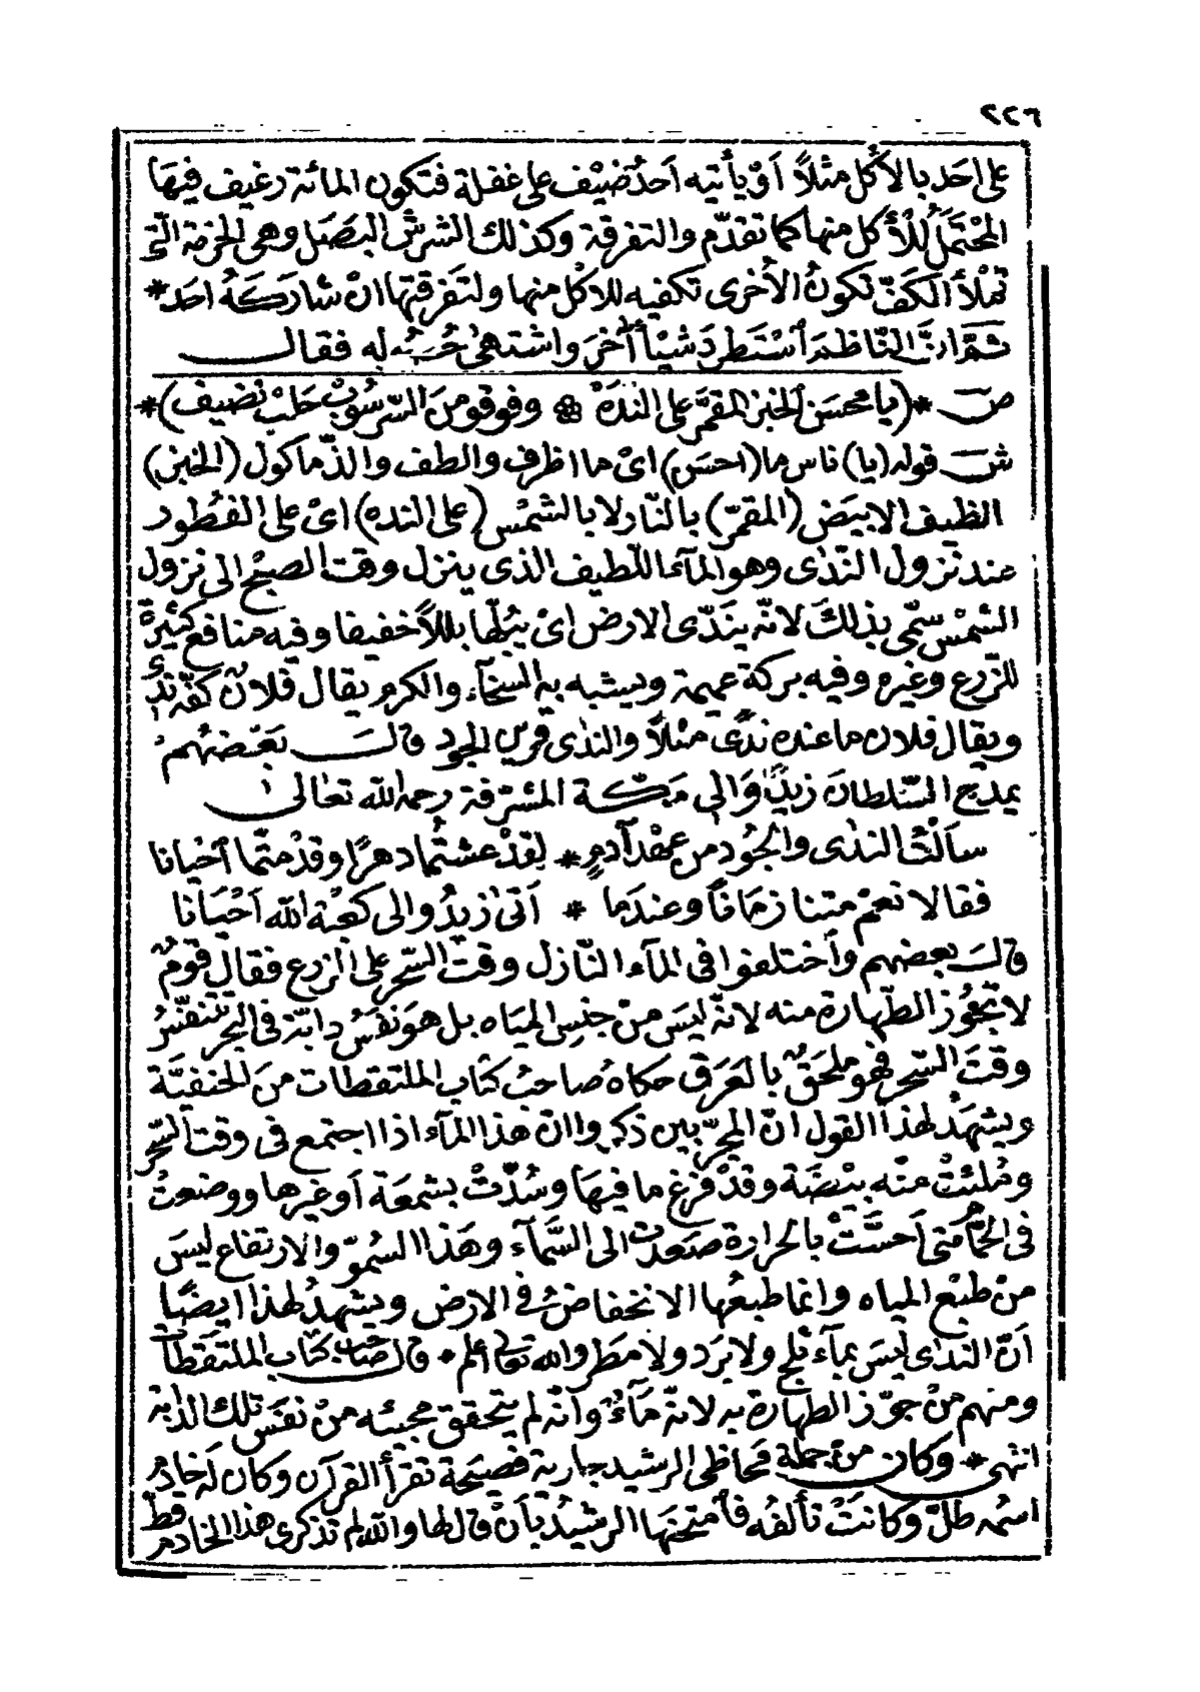 ٢٢٦
على احد بالاكل مثلاً اَوْ يأتيه اَحدُ ضَيْف على غفلة فتكون المائة رغيف فيها
المُحْتَمَلُ للأكل منها كما تقدّم والتفرقة وكذلك الشرش البَصَل وهى الحزمة التى
تملأ الكفّ تكونُ الأخرى تكفيه للاكل منها ولتفرقتها انْ شاركهُ احَد *
ثمّ انّ النّاظمَ اَسْتَطردَ شيْأً آخرَ واشتهىٰ حُبّه له فقال
ص * (يا محسَن الخبز المقمّر على الندَهْ ۞ وفوقو منَ السّرسُوبْ حَلبْ نضيف) *
ش قوله (يا) ناس ما (احسَن) اىْ ما اظرف والطف والذّ مأكول (الخبز)
الظيف الابيَض (المقمّر) بالنّار لا بالشمْس (على النده) اىْ على الفطور
عند نزول النّدٰى وهو المآء اللّطيف الذى ينزل وقت الصبْح الى نزول
الشمْس سمّى بذلكَ لانّه ينَدّى الارض اىْ يبُلّها بللاً خفيفا وفيه منافع كثيرةٌ
للزرع وغيره وفيه بركة عميمة ويشبه به السخآء والكرم يقال فلانٌ كفّه ندىٌّ
ويقال فلان ما عنده ندًى مثلاً والندٰى قرين الجود قال بعْضهُمْ
يمدح السّلطانَ زيدًا وَالى مَكّة المشرفة رحمه الله تعالى
سألتُ الندٰى والجُودَ من عهْد آدمٍ * لقدْ عشتُما دهرًا وقدْ متّما اَحْيانا
فقالا نعمْ متنا زمَاناً وعندَما * اَتىٰ زيدُ والى كعْبة الله اَحْيَانا
قال بعضهم وأختلفوا فى المآء النّازل وقتَ السّحر على الزرع فقال قومٌ
لا تجُوز الطّهارة منه لانّه ليسَ منْ جنسِ الميَاه بل هوَ نفَسُ دابّة فى البحر تتنفّسُ
وقتَ السّحر فهو ملحَقٌ بالعَرَق حكاهُ صاحبُ كتاب الملتقطات منَ الحنفيّة
ويشهَدُ لهذا القول انّ المجرّبين ذكروا انّ هذا المآء اذا اجتمع فى وقت السّحر
ومُلئتْ منْه بيْضَة وقدْ فرّغ ما فيهَا وسُدّتْ بشمعَة اَو غيرها ووضعتْ
فى الحمّام متى اَحسَّتْ بالحرارة صَعدت الى السَّمآء وهَذا السُموّ والارتفاع ليسَ
منْ طبْع المياه وانما طبعُها الانخفاضُ فى الارض ويشهدُ لهذا ايضًا
اَنّ الندٰى ليسَ بمآء ثلج ولا برَد ولا مطَر والله تعالى اَعلم * قال صَاحب كتاب الملتقطات
ومنهم منْ جوّز الطهارة به لانهّ مآءٌ واَنّه لم يتحقق مجيئه منْ نفَس تلك الدابّة
انتهى * وكان منْ جملة محاظى الرشيد جارية فصيحَة تقرأ القرآن وكان لهَ خادمٌ
اسمُه طَلّ وكانتْ تألفُه فأمتحنهَا الرشيدُ بأنْ قال لها والله لم تذكرى هذا الخادم قطّ